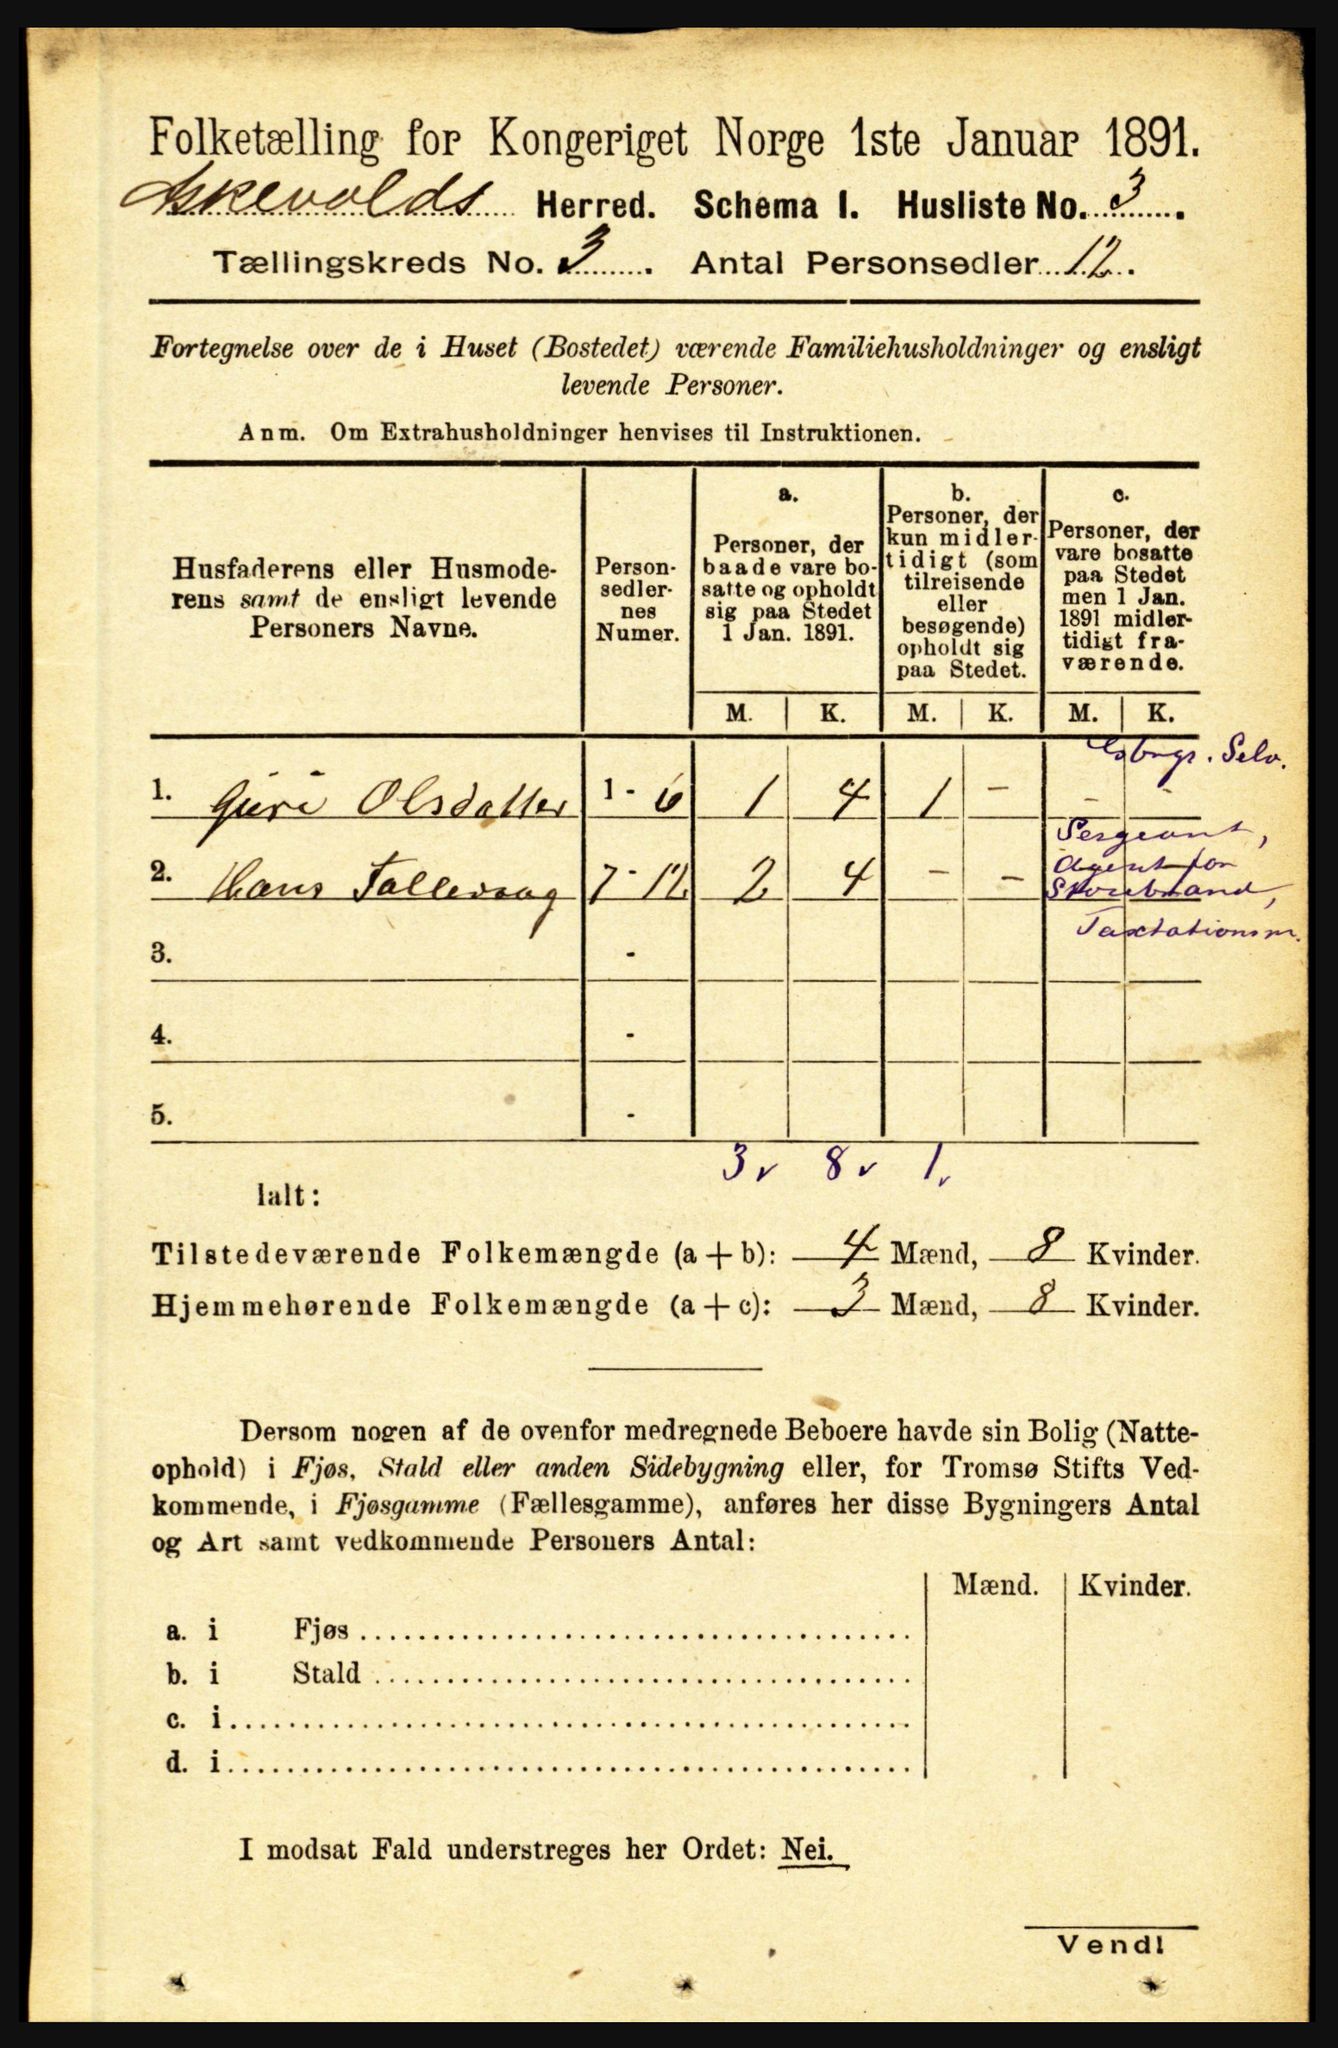 Folketælling for Kongeriget Norge 1ste Januar 1891.
Askevolds Herred. Schema I. Husliste No. 3.
Tællingskreds No. 3. Antal Personsedler 12.
Fortegnelse over de i Huset (Bostedet) værende Familiehusholdninger og ensligt
levende Personer.
Anm. Om Extrahusholdninger henvises til Instruktionen.
Husfaderens eller Husmode-
rens samt de ensligt levende
Personers Navne.
Person-
sedler-
nes
Numer.
a.
Personer, der
baade vare bo-
satte og opholdt
sig paa Stedet
1 Jan. 1891.
b.
Personer, der
kun midler-
tidigt (som
tilreisende
eller
besøgende)
opholdt sig
paa Stedet.
c.
Personer, der
vare bosatte
paa Stedet
men 1 Jan.
1891 midler-
tidigt fra-
værende.
M. K. M. K. M. K.
Gbrgr. Selv.
1. Guri Olsdatter 1 - 6 1 4 1 - - -
Sergeant,
Agent for
2. Hans Tallevaag 7 - 12 2 4 - - Storebrand,
Taxtationsm.
3. -
4. -
5. -
3 v 8 v 1 v
Ialt:
Tilstedeværende Folkemængde (a + b): 4 Mænd, 8 Kvinder.
Hjemmehørende Folkemængde (a + c): 3 Mænd, 8 Kvinder.
Dersom nogen af de ovenfor medregnede Beboere havde sin Bolig (Natte-
ophold) i Fjøs, Stald eller anden Sidebygning eller, for Tromsø Stifts Ved-
kommende, i Fjøsgamme (Fællesgamme), anføres her disse Bygningers Antal
og Art samt vedkommende Personers Antal:
Mænd. Kvinder.
a. i Fjøs
b. i Stald
c. i
d. i
I modsat Fald understreges her Ordet: Nei.
Vend!